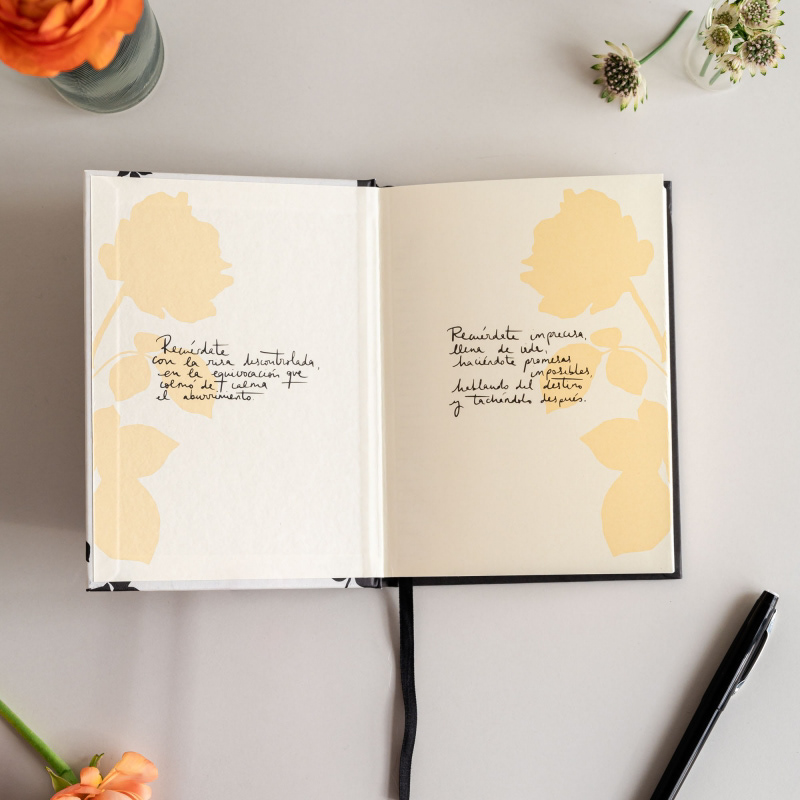 Recuérdate
con la risa descontrolada,
en la equivocación que
colmó de calma
el aburrimiento.
Recuérdate imprecisa,
llena de vida,
haciéndote promesas
imposibles,
hablando del destino
y tachándolo después.